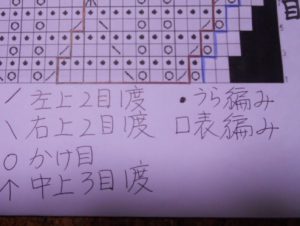 目
／ 左上2目1度
＼ 右上2目2度
○ かけ目
↑ 中上3目1度
• うら編み
□ 表編み